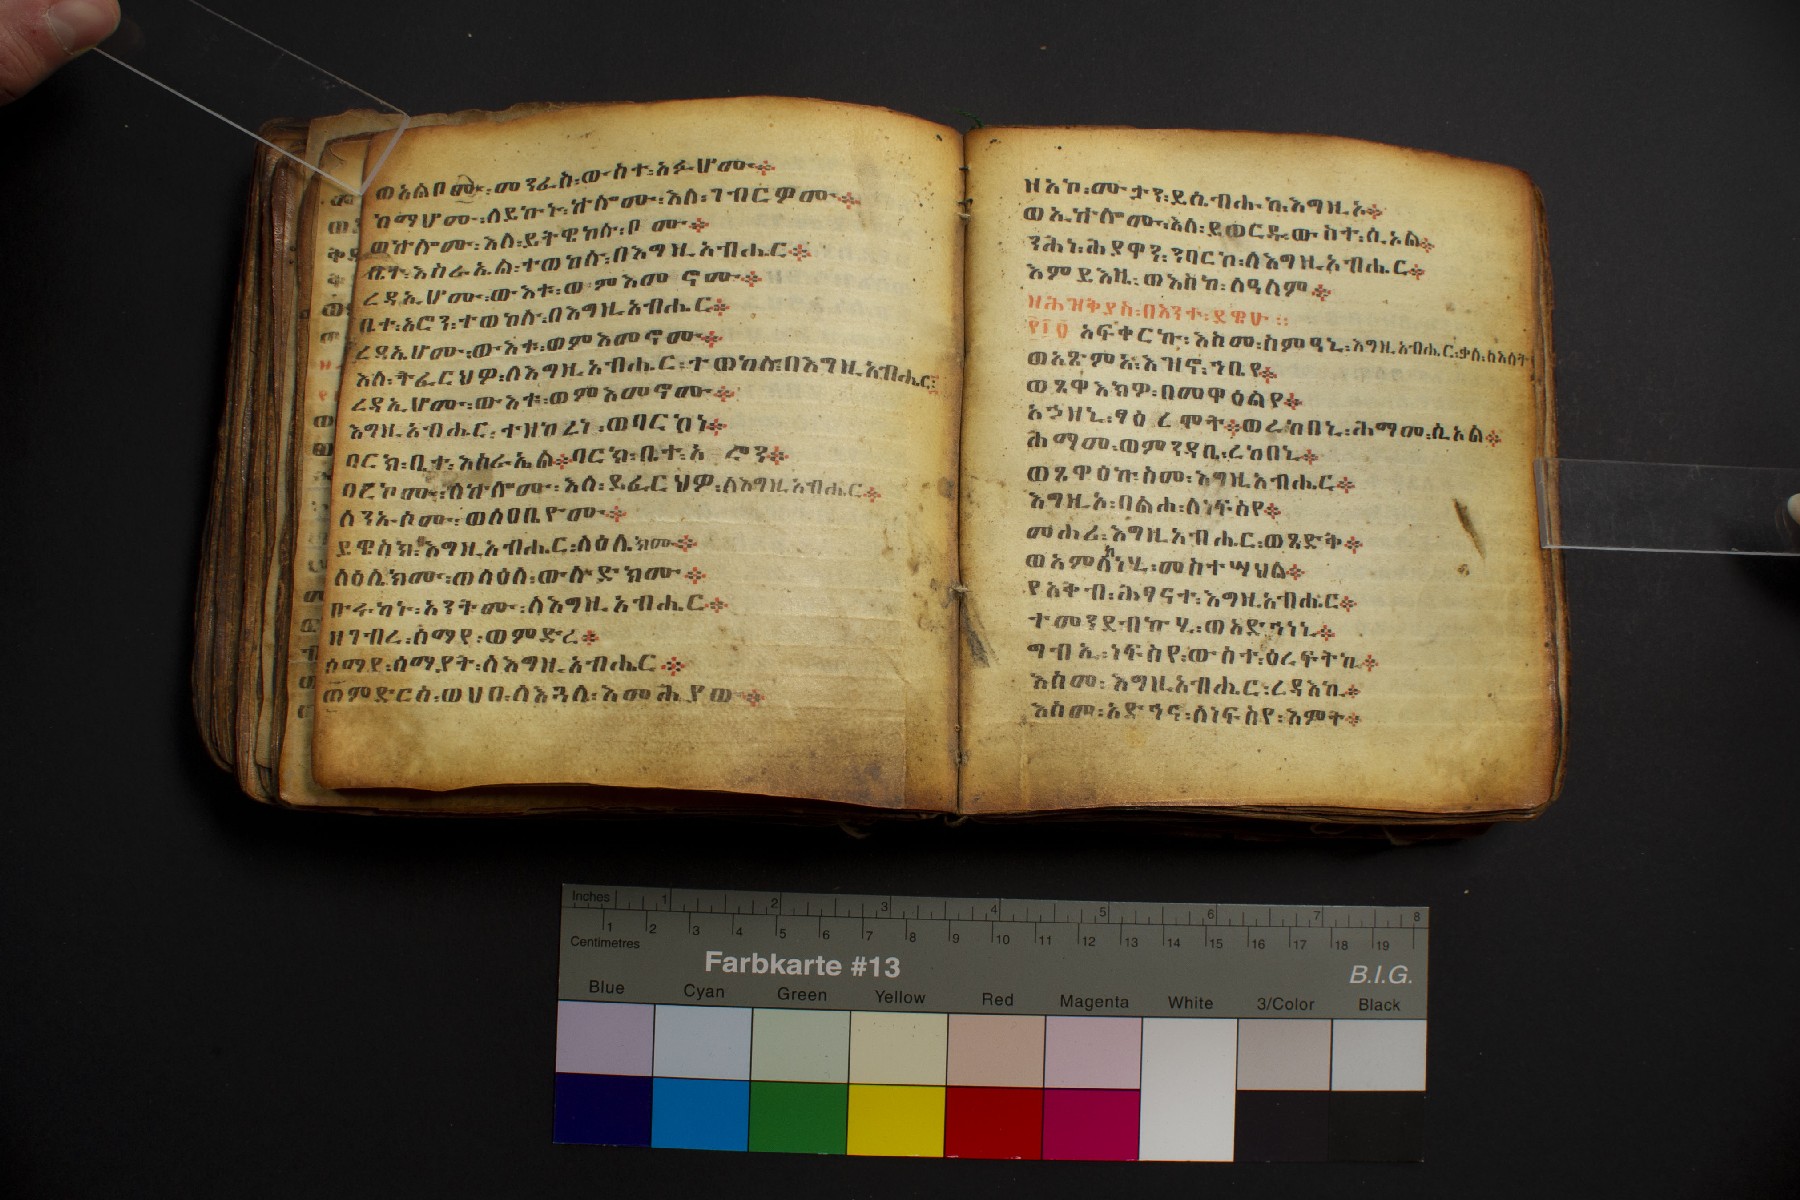 ወአልቦሙ፡መንፈስ፡ውስተ፡አፉሆሙ፨
ከማሆሙ፡ለይኩኑ፡ኵሎሙ፡እለ፡ገብርዎሙ፨
ወኵሎሙ፡እለ፡ይትዌከሉ፡ቦሙ፨
ቤተ፡እስራኤል፡ተወከሉ፡በእግዚአብሔር፨
ረዳኢሆሙ፡ውእቱ፡ወምእመኖሙ፨
ቤተ፡አሮን፡ተወከሉ፡በእግዚአብሔር፨
ረዳኢሆሙ፡ውእቱ፡ወምእመኖሙ፨
እለ፡ትፈርህዎ፡ለእግዚአብሔር፡ተወከሉ፡በእግዚአብሔር፨
ረዳኢሆሙ፡ውእቱ፡ወምእመኖሙ፨
እግዚአብሔር፡ተዘከረነ፡ወባርከነ፨
ባርክ፡ቤተ፡እስራኤል፨ባርክ፡ቤተ፡አሮን፨
ባርኮሙ፡ለኵሎሙ፡እለ፡ይፈርህዎ፡ለእግዚአብሔር፨
ለንኡሶሙ፡ወለዐቢዮሙ፨
ይዌስክ፡እግዚአብሔር፡ላዕሌክሙ፨
ላዕሌክሙ፡ወላዕለ፡ውሉድክሙ፨
ቡሩካኑ፡አንትሙ፡ለእግዚአብሔር፨
ዘገብረ፡ሰማየ፡ወምድረ፨
ሰማየ፡ሰማያት፡ለእግዚአብሔር፨
ወምድርሰ፡ወሀበ፡ለእጓለ፡እመሕያው፨
ዘአኮ፡ሙታን፡ይሴብሑከ፡እግዚኦ፨
ወኢኵሎሙ፡እለ፡ይወርዱ፡ውስተ፡ሲኦል፨
ንሕነ፡ሕያዋን፡ንባርኮ፡ለእግዚአብሔር፨
እምይእዜ፡ወእስከ፡ለዓለም፨
ዘሕዝቅያስ፡በእንተ፡ደዌሁ።
፻፲፬ አፍቀርኩ፡እስመ፡ስምዓኒ፡እግዚአብሔር፡ቃለ፡ስእለት
ወአጽምአ፡እዝኖ፡ኀቤየ፨
ወጼዋእክዎ፡በመዋዕልየ፨
አኃዘኒ፡ፃዕረ፡ሞት፨ወረከበኒ፡ሕማመ፡ሲኦል፨
ሕማመ፡ወምንዳቤ፡ረከበኒ፨
ወጼዋዕኩ፡ስመ፡እግዚአብሔር፨
እግዚኦ፡በልሐ፡ለነፍስየ፨
መሐሪ፡እግዚአብሔር፡ወጻድቅ፨
ወአምላክነሂ፡መስተሣህል፨
የአቅብ፡ሕፃናተ፡እግዚአብሔር፨
ተመንደብኩሂ፡ወአድኀነኒ፨
ግብኢ፡ነፍስየ፡ውስተ፡ዕረፍትኪ፨
እስመ፡እግዚአብሔር፡ረዳእኪ፨
እስመ፡አድኀና፡ለነፍስየ፡እምት፨
Inches 1 2 3 4 5 6 7 8
1 2 3 4 5 6 7 8 9 10 11 12 13 14 15 16 17 18 19
Centimetres
Farbkarte #13
B.I.G.
Blue Cyan Green Yellow Red Magenta White 3/Color Black